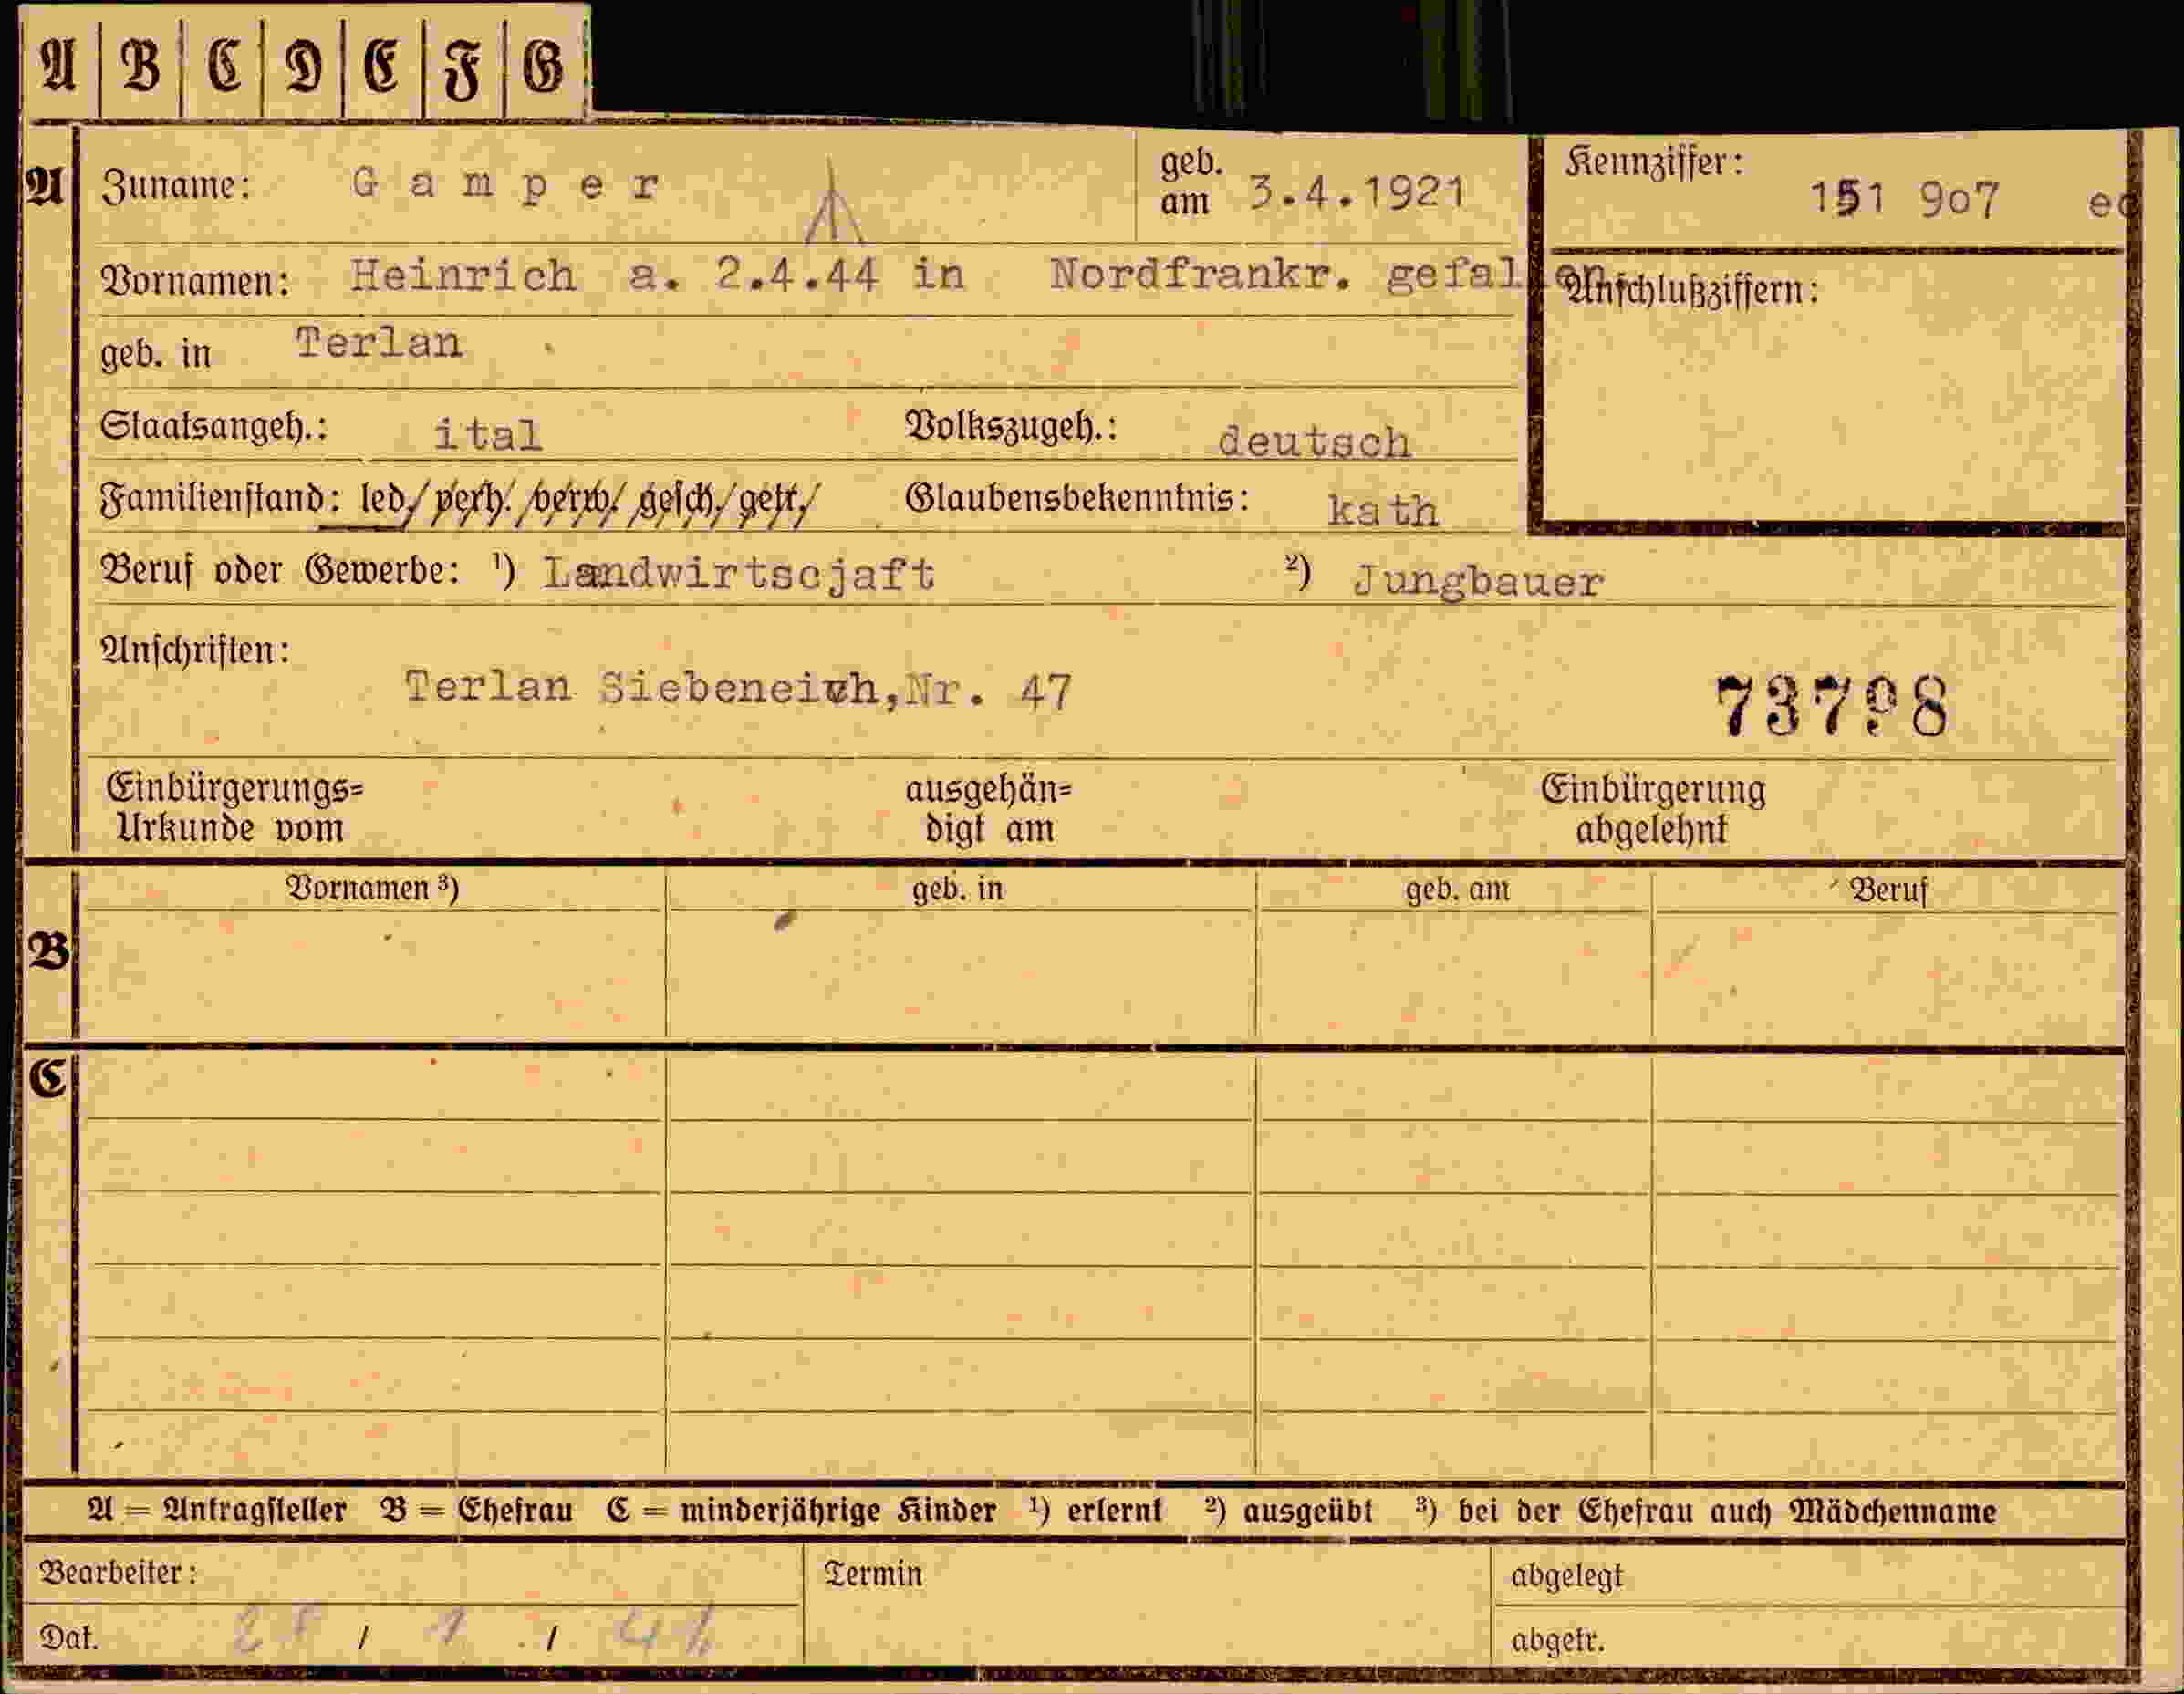 A B C D E F G
A Zuname: Gamper geb. am 3.4.1921 Kennziffer: 151 9o7
Vornamen: Heinrich a. 2.4.44 in Nordfrankr. gefallen Anschlußziffern:
geb. in Terlan
Staatsangeh.: ital Volkszugeh.: deutsch
Familienstand: led/ verh. /verw/ gesch/ getr/ Glaubensbekenntnis: kath
Beruf oder Gewerbe: ¹) Landwirtscjaft ²) Jungbauer
Anschriften:
Terlan Siebeneich, Nr. 47 73798
Einbürgerungs= ausgehän= Einbürgerung
Urkunde vom digt am abgelehnt
Vornamen ³) geb. in geb. am Beruf
B
C
A = Antragsteller B = Ehefrau C = minderjährige Kinder ¹) erlernt ²) ausgeübt ³) bei der Ehefrau auch Mädchenname
Bearbeiter: Termin abgelegt
Dat. / 1 / abgetr.